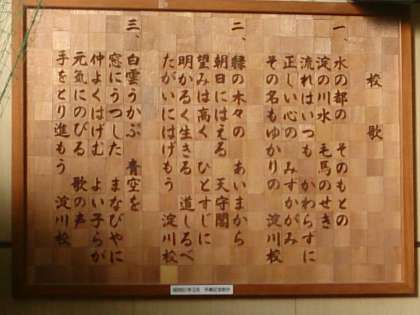 校歌
一、水の都の そのもとの
淀の川水 毛馬のせき
流れはいつも かわらずに
正しい心の みずかがみ
その名もゆかりの 淀川校
二、緑の木々の あいまから
朝日にはえる 天守閣
望みは高く ひとすじに
明かるく生きる 道しるべ
たがいにはげもう 淀川校
三、白雲うかぶ 青空を
窓にうつした まなびやに
仲よくはげむ よい子らが
元気にのびる 歌の声
手をとり進もう 淀川校